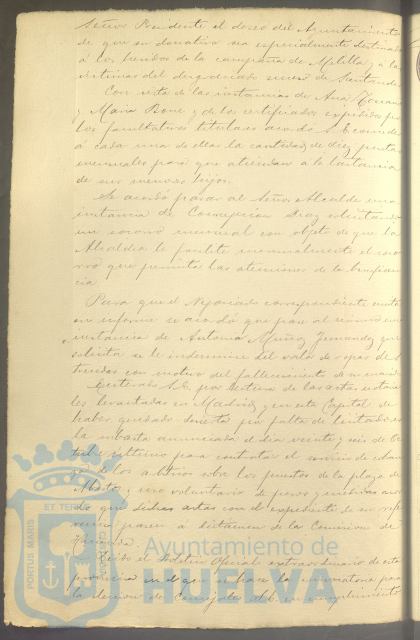 Señor Presidente el deseo del Ayuntamiento
de que su donativo sea especialmente destinado
á los heridos de la campaña de Melilla y a las
victimas del desgraciado suceso de Santander
Con vista de las instancias de Ana
y Maria y de los certificados expedidos por
los facultativos titulares acordó S.E. conceder
á cada una de ellas la cantidad de diez pesetas
mensuales para que atiendan á la lactancia
de sus menores hijos.
Se acordó pasar al Señor Alcalde una
instancia de Concepcion Diaz solicitando
un socorro mensual con objeto de que la
Alcaldia le facilite mensualmente el socorro
que permita las atenciones de la beneficencia
Para que el Negociado correspondiente emita
un informe se acordó que pase al mismo una
instancia de Antonia Muñoz Fernandez que
solicita se le indemnice del valor de ropas destruidas
con motivo del fallecimiento de su marido
Enterado S.E. por lectura de las actas notariales
levantadas en Madrid y en esta Capital de
haber quedado desierta por falta de licitadores
la subasta anunciada el dia veinte y seis de Octubre
ultimo para contratar el servicio de cobranza
de los arbitrios sobre los puestos de la plaza de
Abastos y uso voluntario de pesos y medidas acordó
que dichas actas con el expediente de su referencia
pasen á dictamen de la Comision de
Hacienda.
Leido el Boletin Oficial extraordinario de esta
provincia en el que se hace la convocatoria para
la eleccion de Concejales
PORTUS MARIS
ET TERRAE
CUSTODIA
Ayuntamiento de
HUELVA